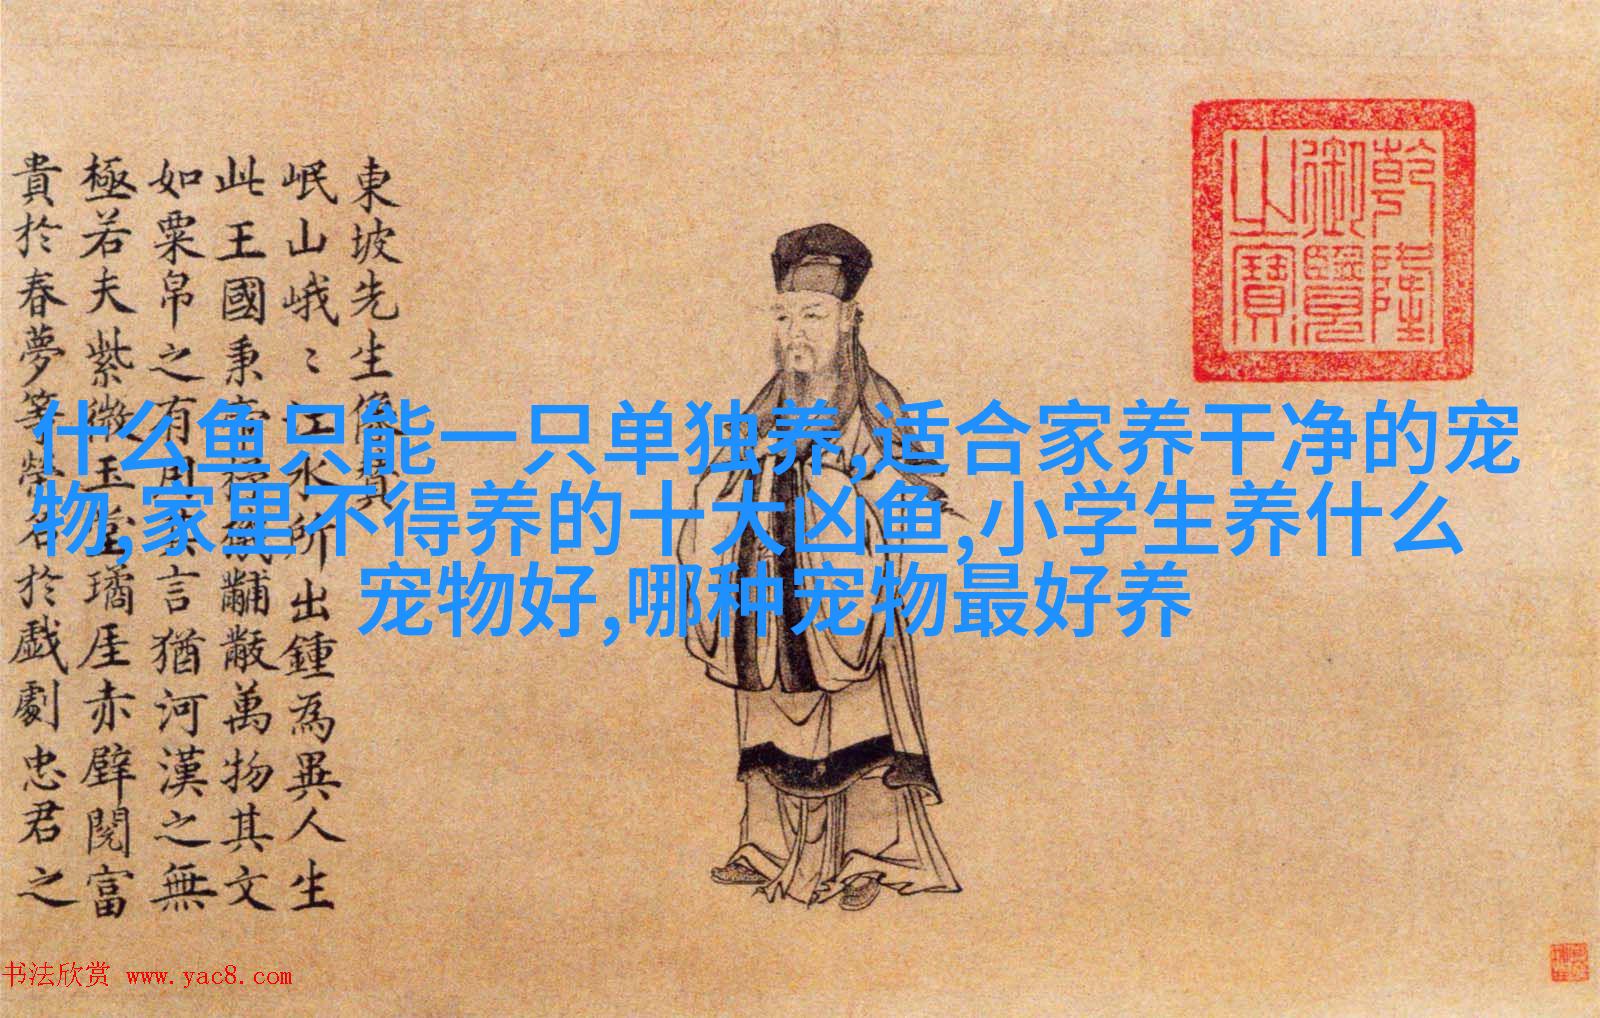 東坡先生像贊
岷山峨〻江水所出鍾為異人生
此王國秉帝機黼黻萬物其文
如粟帛之有用其言猶河漢之無
極若夫紫微玉堂璚厓赤壁閱富
貴於春夢等榮名於戲劇忠君之
乾隆
御覽
之寶
什么鱼只能一只单独养,适合家养干净的宠
物,家里不得养的十大凶鱼,小学生养什么
宠物好,哪种宠物最好养
书法欣赏 www.yac8.com